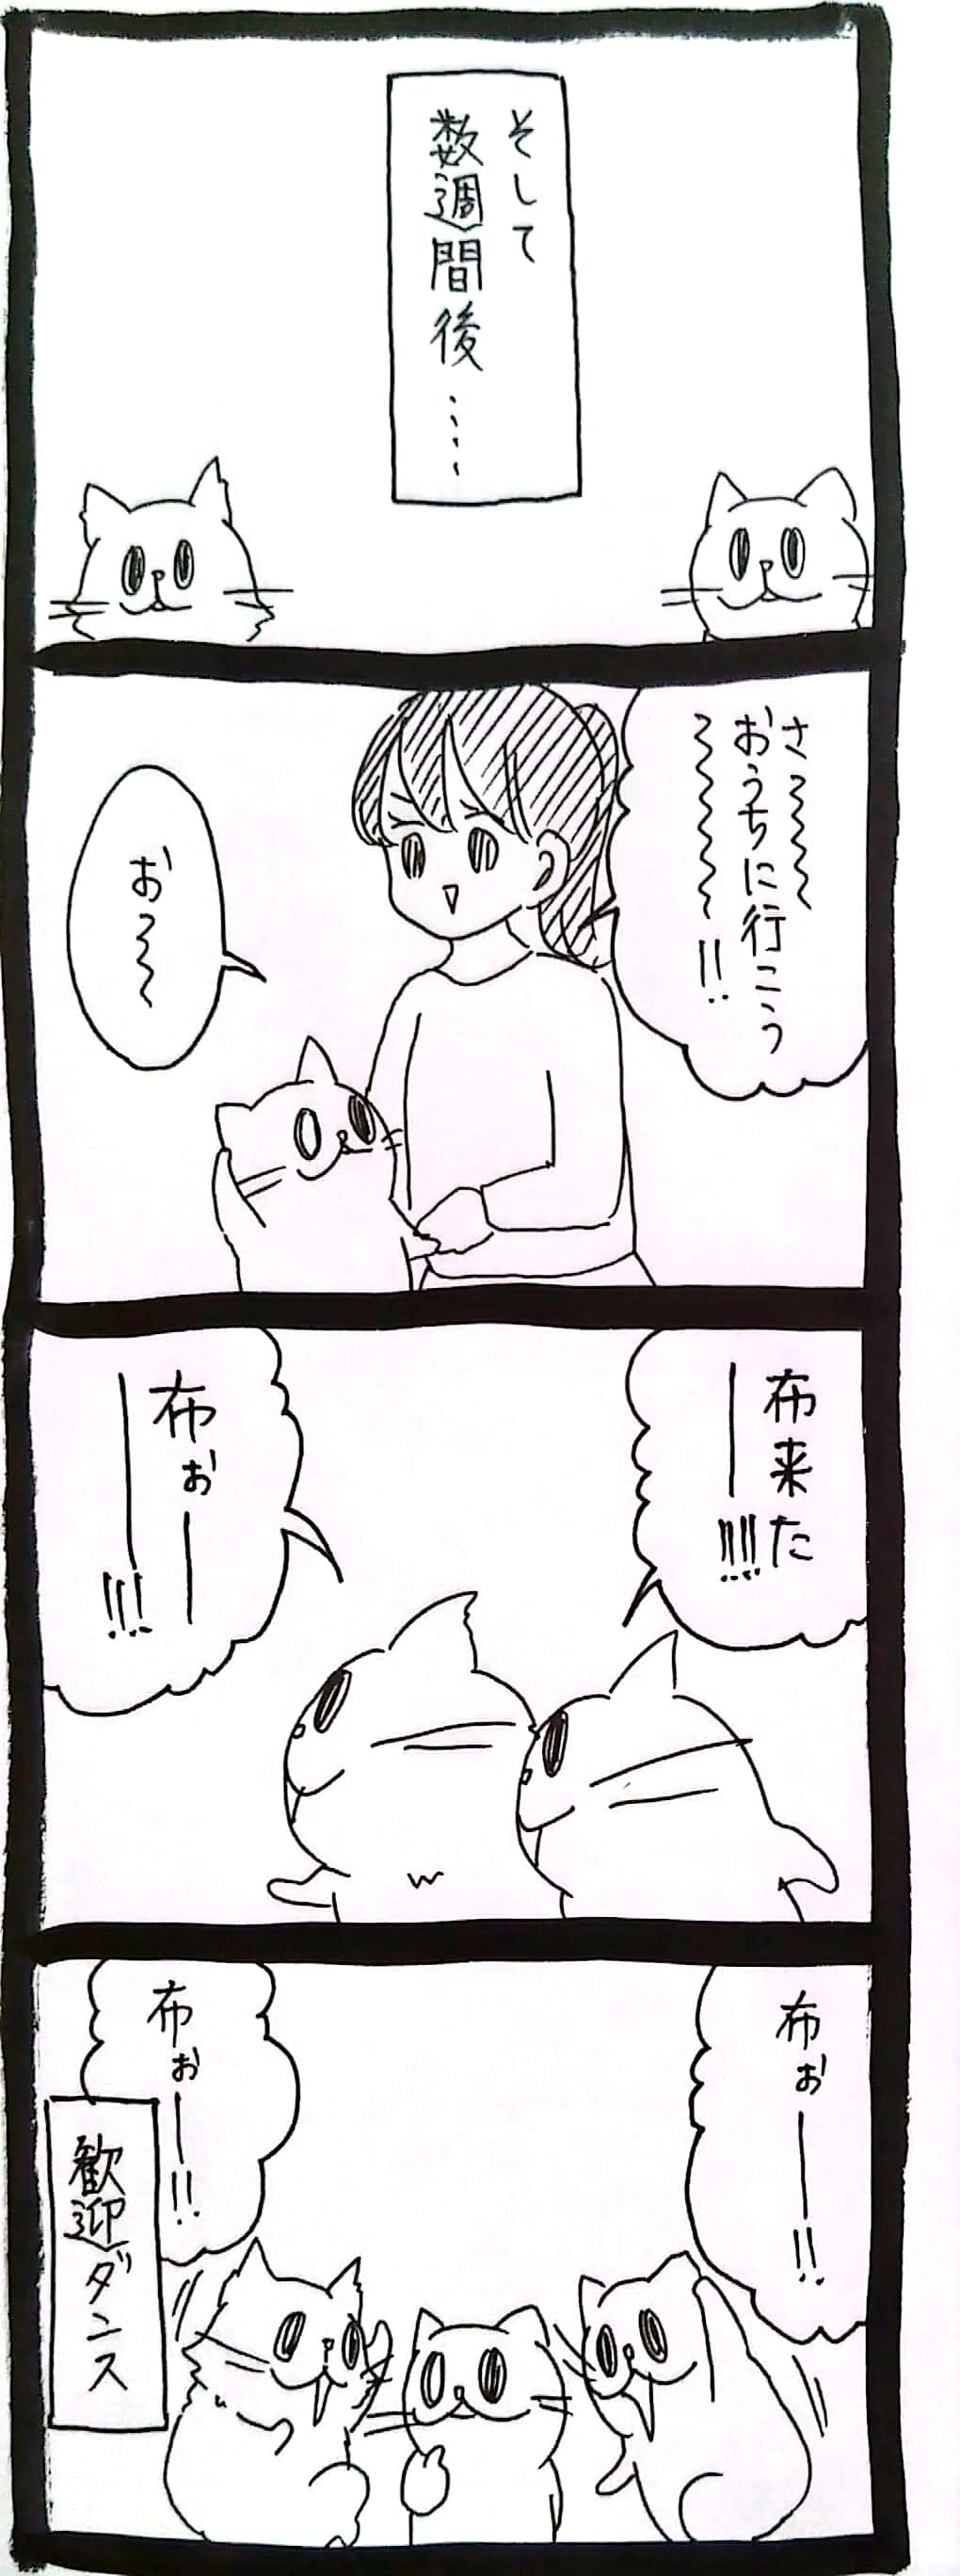 そして
数週間後……
さ〜〜〜
おうちに行こう
〜〜〜〜!!
お〜〜
布来た
ー!!!!
布ぉー
ー!!!
布ぉー!!
布ぉー!!
歓迎ダンス